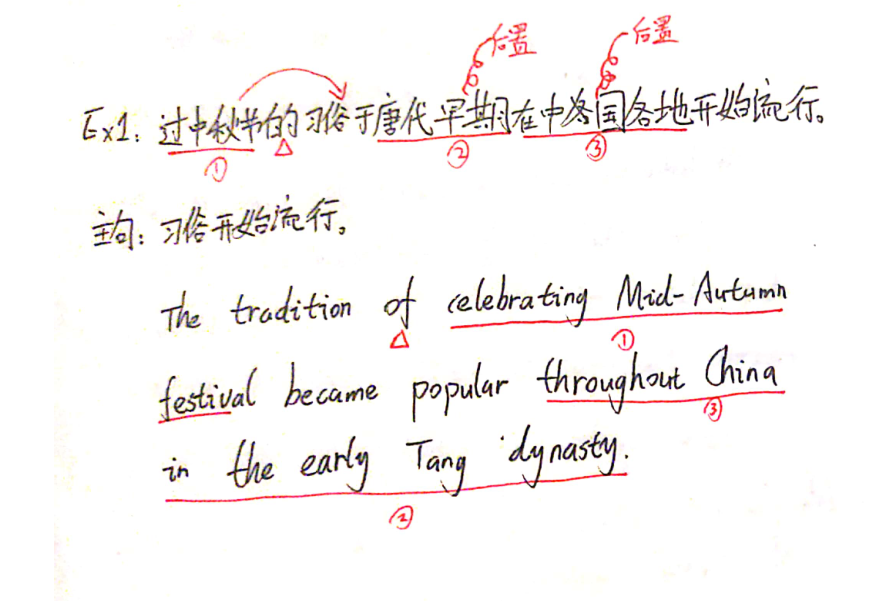 后置 后置
Ex1: 过中秋节的习俗于唐代早期在中国各地开始流行。
△
① ② ③
主句: 习俗开始流行。
The tradition of celebrating Mid-Autumn
△ ①
festival became popular throughout China
③
in the early Tang dynasty.
②